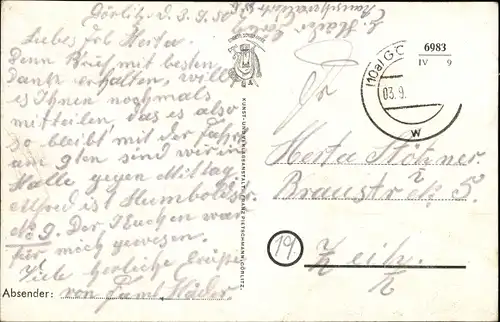 Görlitz d. 3.9.50
Liebes Frl. Herta.
Denn Brief mit besten
Dank erhalten, will
es Ihnen nochmals
mitteilen das es also
so bleibt mit der Fahrt
am 9ten send wir in
Halle gegen Mittag
Alfred ist Humboldstr.
No 9. Der Kuchen war
für mich gewesen.
Viele herliche Grüße
Absender: von Faml. Häder.
KUNST- UND VERLAGSANSTALT FRANZ PIETSCHMANN, GÖRLITZ.
(10a) GÖ
6983
IV 9
03.9.
w
Herta Stötzner.
Braustr. No 5.
(19)
Zeitz